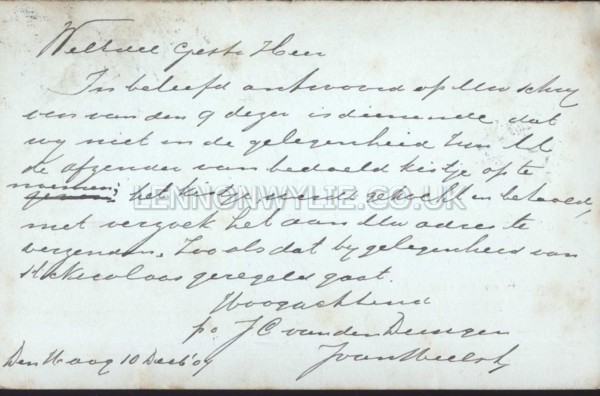 WelEdel Gestr Heer
In beleefd antwoord op Uw schrij
ven van den 9 dezer is dienende dat
wij niet in de gelegenheid zijn U
de afzender van bedoeld kistje op te
noemen; het kistje is hier gebracht en betaald,
met verzoek het aan Uw adres te
verzenden, zooals dat bij gelegenheid van
St Nicolaas geregeld gaat.
Hoogachtend
p.o J C van den
Den Haag 10 Decb 09
LENNONWYLIE.CO.UK